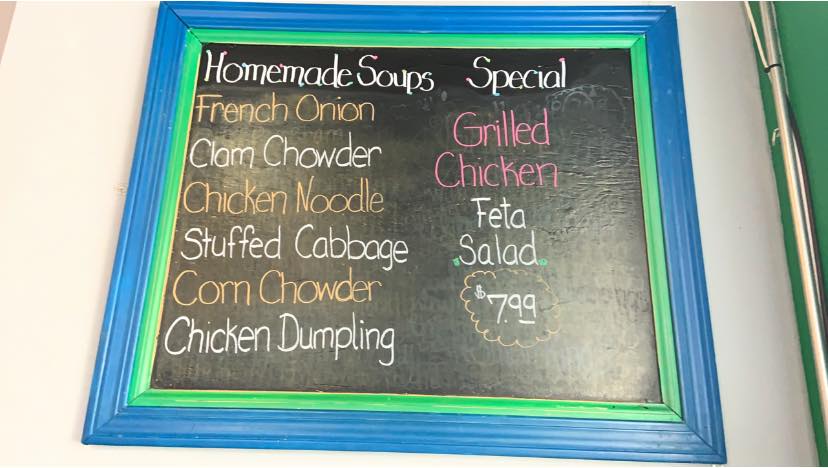 Homemade Soups
French Onion
Clam Chowder
Chicken Noodle
Stuffed Cabbage
Corn Chowder
Chicken Dumpling
Special
Grilled
Chicken
Feta
Salad
$7.99